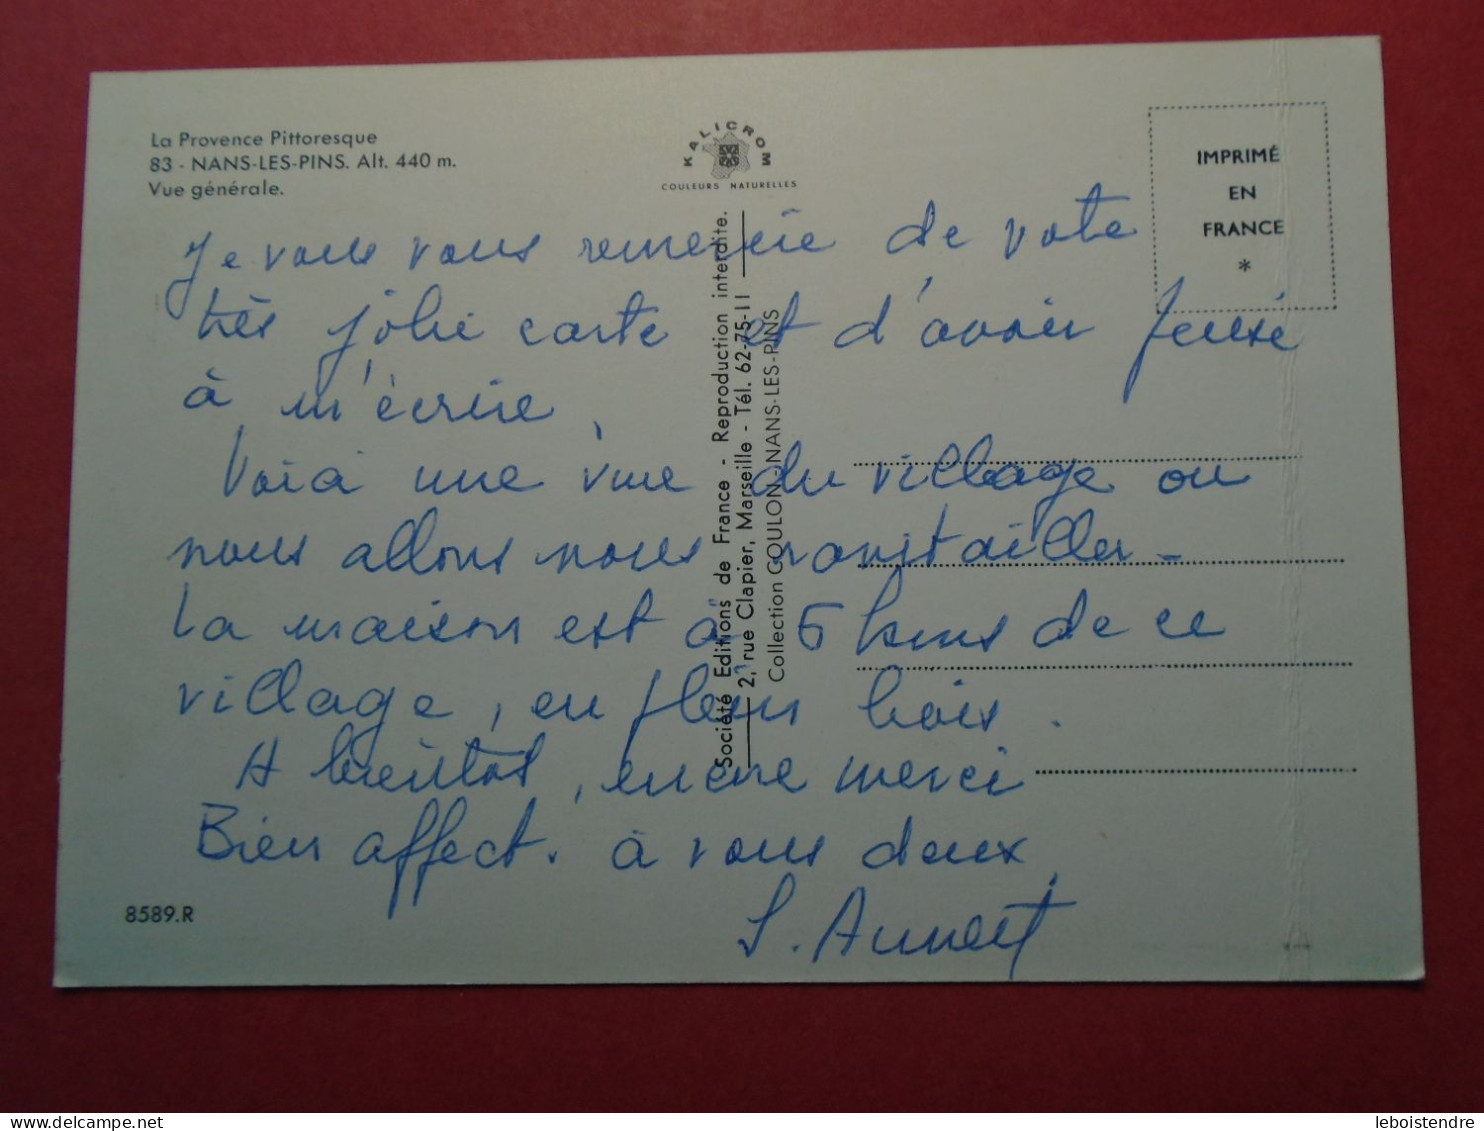 La Provence Pittoresque
83 - NANS-LES-PINS. Alt. 440 m.
Vue générale.
KALICROM
COULEURS NATURELLES
IMPRIMÉ
EN
FRANCE
*
Société Editions de France - Reproduction interdite.
2, rue Clapier, Marseille - Tél. 62-75-11
Collection GOULON - NANS-LES-PINS
Je vous vous remercie de vote
très jolie carte et d'avoir pensé
à m'écrire.
Voici une vue du village ou
nous allons nous ravitailler -
La maison est à 5 kms de ce
village, en plein bois.
A bientôt, encore merci
Bien affect. à vous deux.
S.
8589.R
leboistendre